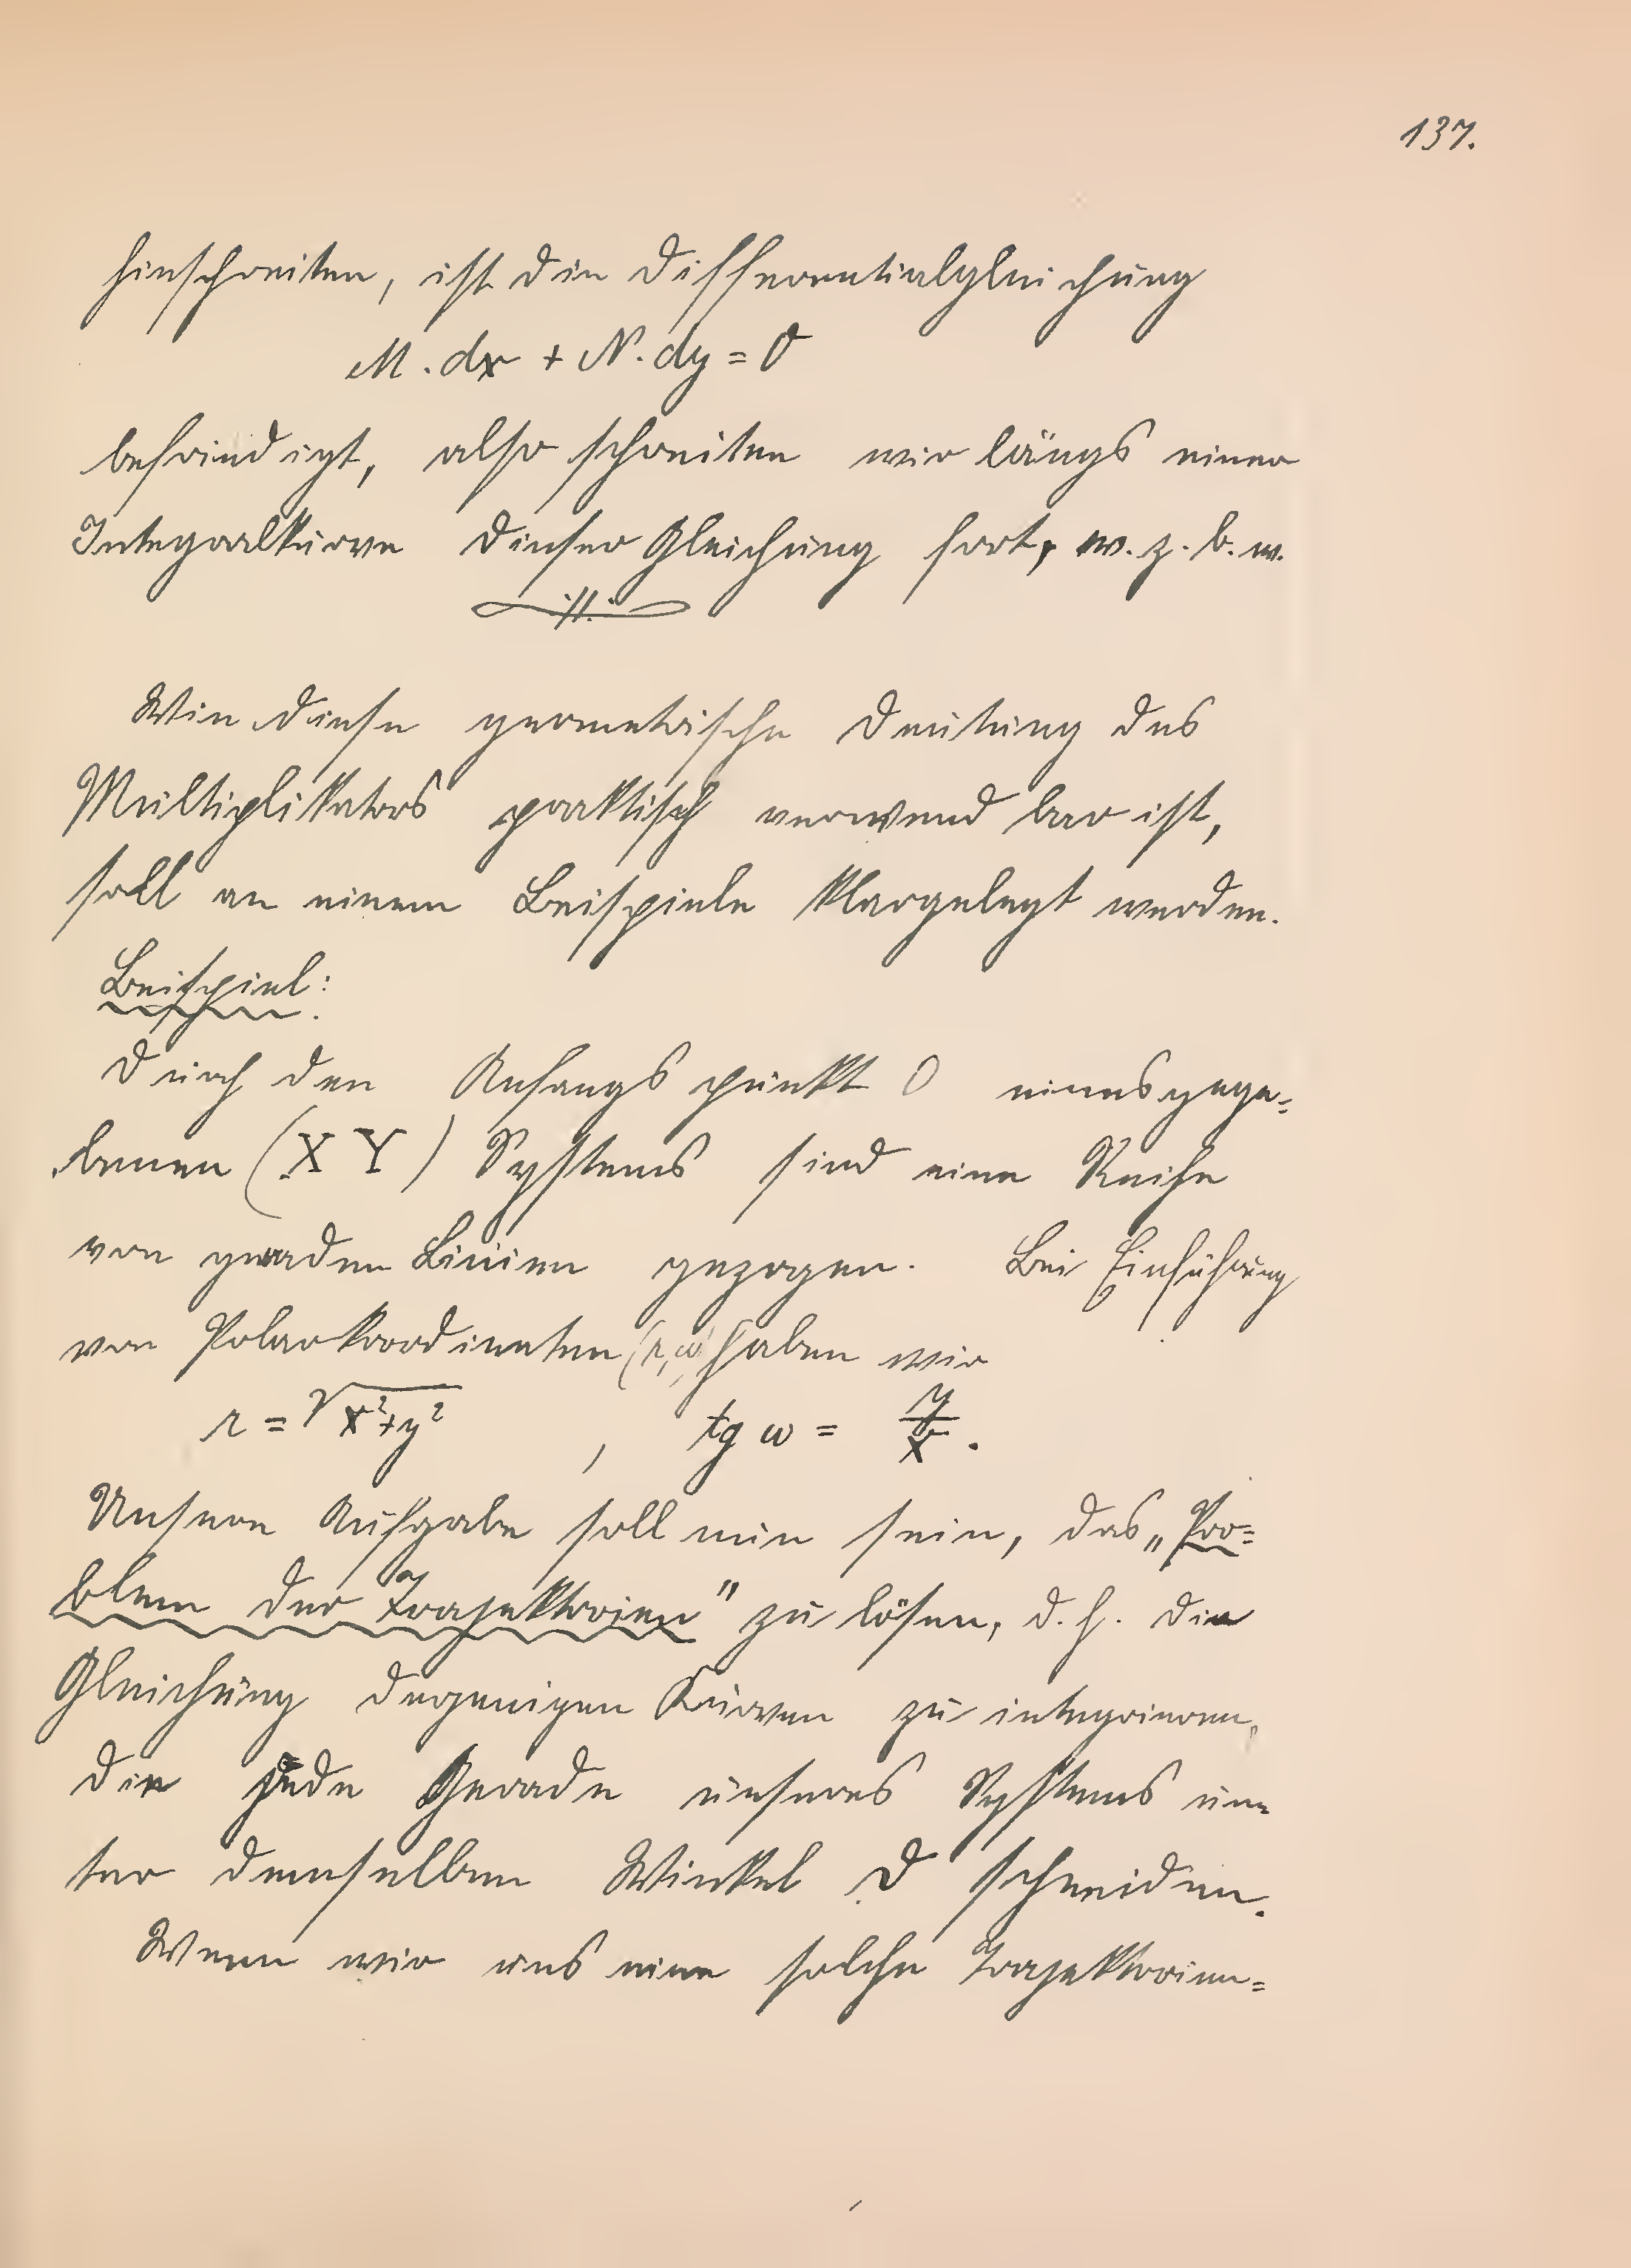 137.
hinschreiten, ist die Differentialgleichung
M . dx + N . dy = 0
befriedigt, also schreiten wir längs einer
Integralkurve dieser Gleichung fort, w. z. b. w.
Wie diese geometrische Deutung des
Multiplikators praktisch verwendbar ist,
soll an einem Beispiele klargelegt werden.
Beispiel:
Durch den Anfangspunkt O eines gege=
benen (X Y) Systems sind eine Reihe
von geraden Linien gezogen. Bei Einführung
von Polarkoordinaten (r, ω) haben wir
r = √x²+y² , tg ω = y/x .
Unsere Aufgabe soll nun sein, das „Pro=
blem der Trajektorien" zu lösen, d. h. die
Gleichung derjenigen Kurven zu integrieren,
die jede Gerade unseres Systems un=
ter demselben Winkel ϑ schneiden.
Wenn wir uns eine solche Trajektorien=